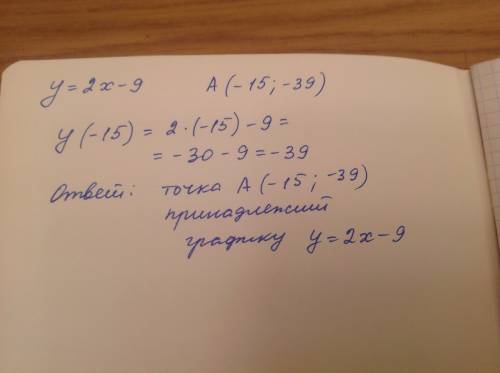 y = 2x - 9 A (-15; -39)
y (-15) = 2·(-15) - 9 =
= -30 - 9 = -39
Ответ: точка A (-15; -39)
принадлежит
графику y = 2x - 9